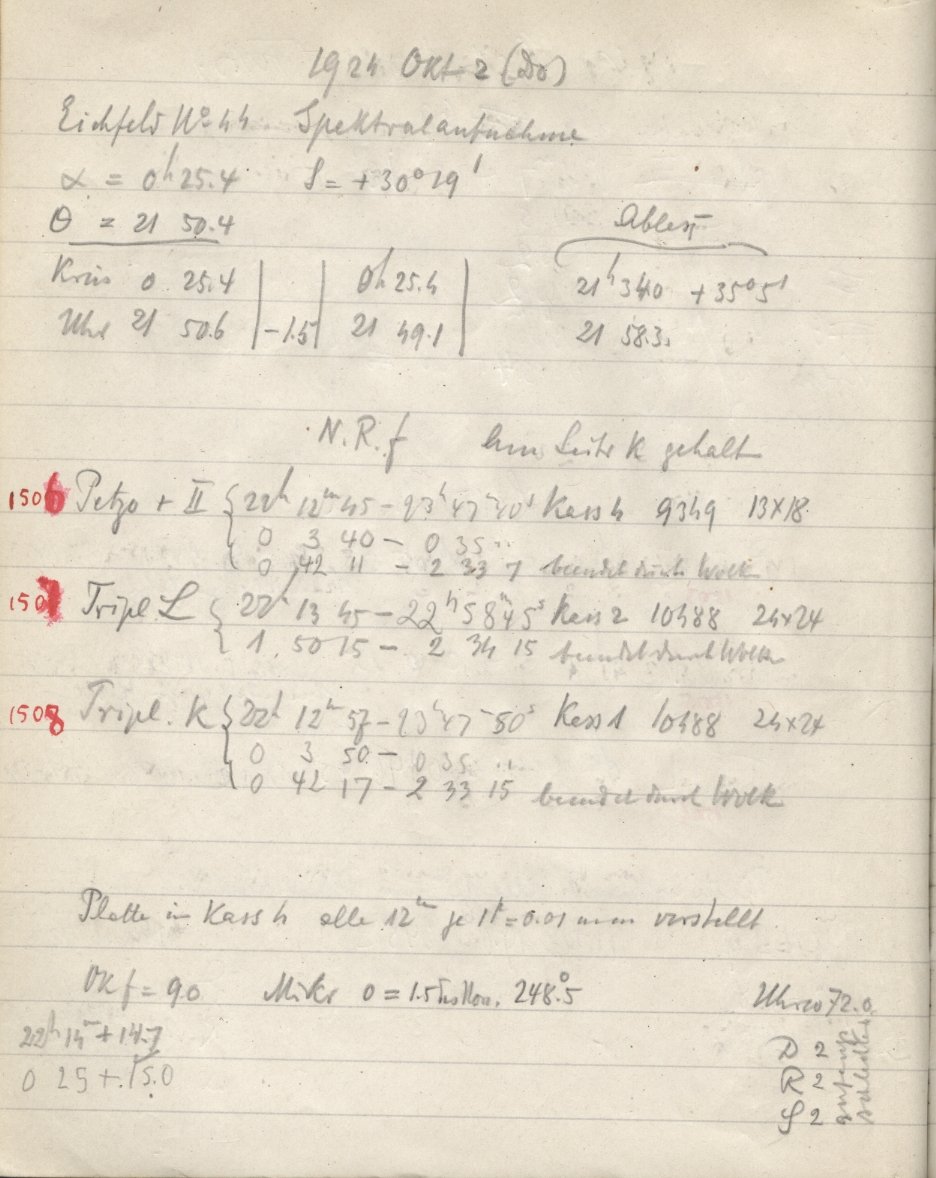 1924 Okt 2 (Do)
Eichfeld No 44 Spektralaufnahme
α = 0h 25.4 δ = +30° 19'
θ = 21 50.4
Ables
Kreis 0 25.4 | | 0h 25.4 | 21h 34.0 +35° 5'
Uhr 21 50.6 | -1.5 | 21 49.1 | 21 58.3
N.R.f K gehalt
1506 Petzo + II { 22h 12m 45 - 23h 47m 40s Kass 4 9349 13×18
0 3 40 - 0 35 ..
0 42 11 - 2 33 7 beendet durch Wolk
1507 Tripl. L { 22h 13 45 - 22h 58m 45s Kass 2 10488 24×24
1 50 15 - 2 34 15 beendet durch Wolk
1508 Tripl. K { 22h 12m 57 - 23h 47m 50s Kass 1 10488 24×24
0 3 50 - 0 35 ..
0 42 17 - 2 33 15 beendet durch Wolk
Platte in Kass 4 alle 12m je 1t = 0.01 mm verstellt
Okf = 90 Mikr 0 = 1.5 248°.5
22h 14m + 14.7
0 25 + 15.0
72.0
D 2
R 2
S 2